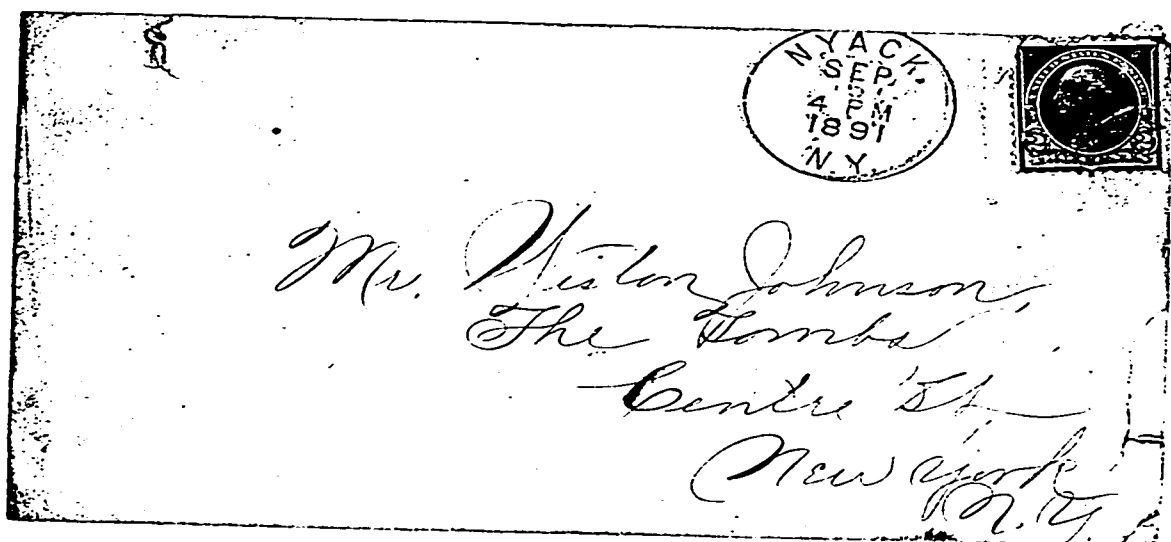 NYACK.
SEP
5
4 PM
1891
N.Y.
Mr. Wiston Johnson,
The Tombs
Centre St
New York
N.Y.